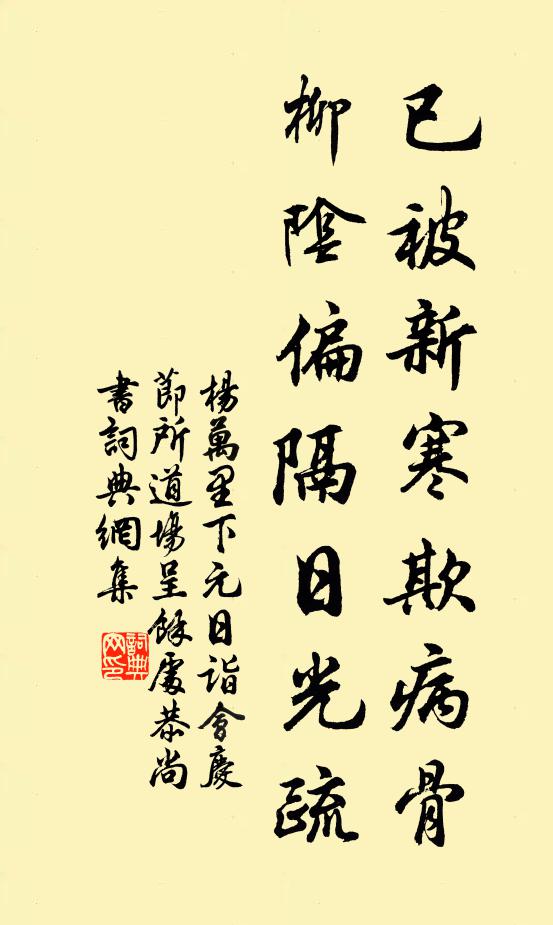 已被新寒欺病骨
柳陰偏隔日光疏
楊萬里下元日詣會慶
節所道場呈餘處恭尚
書詞典網集
詞典網印